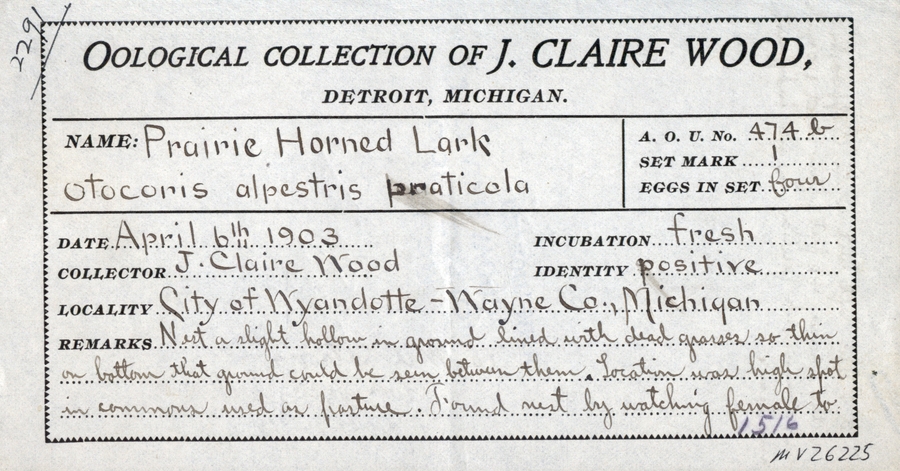 229
OOLOGICAL COLLECTION OF J. CLAIRE WOOD,
DETROIT, MICHIGAN.
NAME: Prairie Horned Lark
Otocoris alpestris praticola
A. O. U. No. 474 b
SET MARK 1
EGGS IN SET four
DATE April 6th 1903
INCUBATION fresh
COLLECTOR J. Claire Wood
IDENTITY positive
LOCALITY City of Wyandotte - Wayne Co., Michigan
REMARKS Nest a slight hollow in ground lined with dead grasses so thin
on bottom that ground could be seen between them. Location was high spot
in commons used as pasture. Found nest by watching female to
1516
MV26225